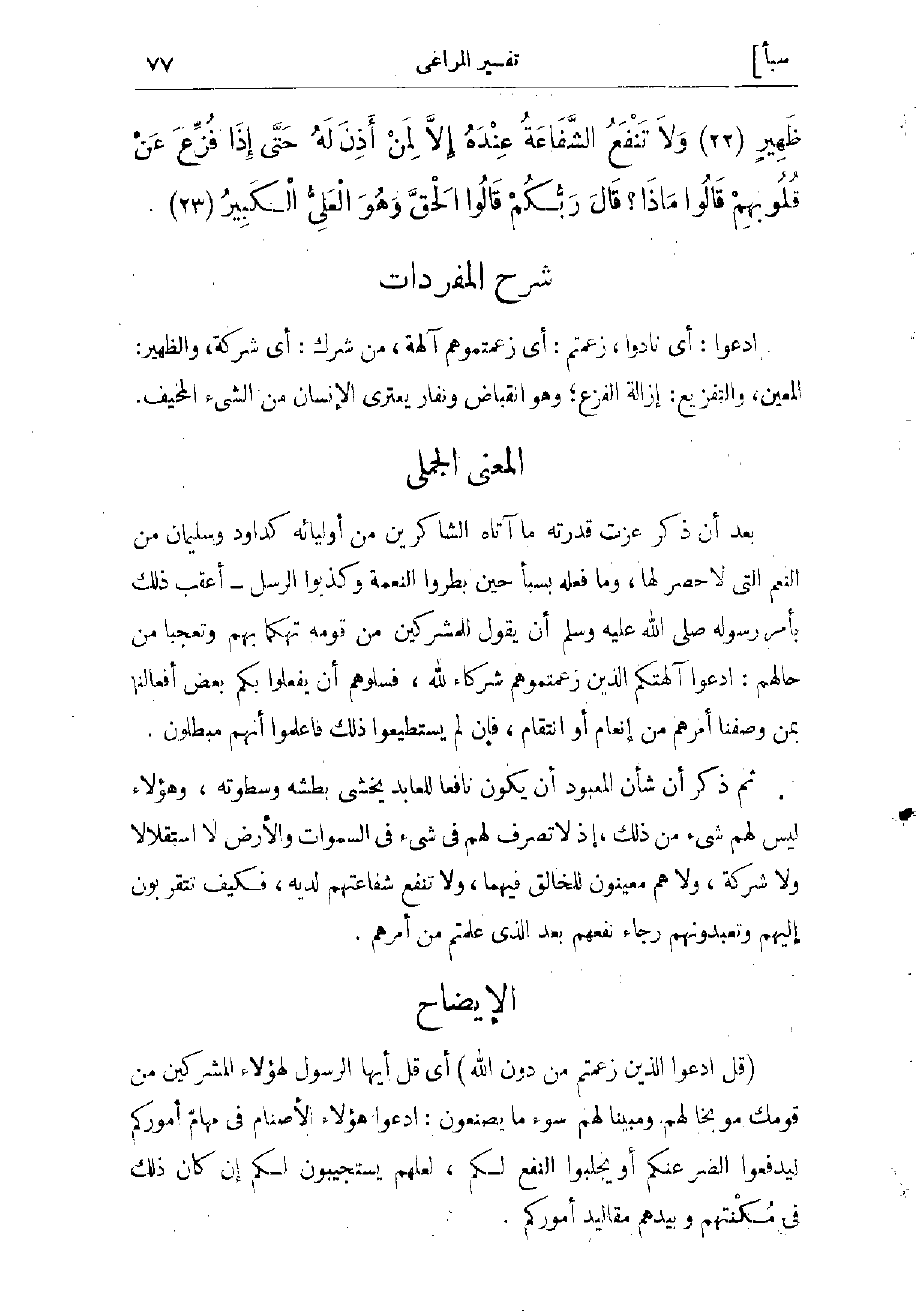 سبأ] تفسير المراغى ٧٧
ظَهِيرٍ (٢٢) وَلاَ تَنْفَعُ الشَّفَاعَةُ عِنْدَهُ إِلاَّ لِمَنْ أَذِنَ لَهُ حَتَّى إِذَا فُزِّعَ عَنْ
قُلُوبِهِمْ قَالُوا مَاذَا؟ قَالَ رَبُّكُمْ قَالُوا الْحَقَّ وَهُوَ الْعَلِىُّ الْكَبِيرُ (٢٣) .
شرح المفردات
ادعوا : أى نادوا ، زعمتم : أى زعمتموهم آلهة ، من شرك : أى شركة، والظهير:
المعين، والتفزيع: إزالة الفزع؛ وهو انقباض ونفار يعترى الإنسان من الشىء المخيف.
المعنى الجملى
بعد أن ذكر عزت قدرته ما آتاه الشاكرين من أوليائه كداود وسليمان من
النعم التى لاحصر لها ، وما فعله بسبأ حين بطروا النعمة وكذبوا الرسل – أعقب ذلك
بأمر رسوله صلى الله عليه وسلم أن يقول للمشركين من قومه تهكما بهم وتعجبا من
حالهم : ادعوا آلهتكم الذين زعمتموهم شركاء لله ، فسلوهم أن يفعلوا بكم بعض أفعالنا
بمن وصفنا أمرهم من إنعام أو انتقام ، فإن لم يستطيعوا ذلك فاعلموا أنهم مبطلون .
ثم ذكر أن شأن المعبود أن يكون نافعا للعابد يخشى بطشه وسطوته ، وهؤلاء
ليس لهم شىء من ذلك ، إذ لاتصرف لهم فى شىء فى السموات والأرض لا استقلالا
ولا شركة ، ولا هم معينون للخالق فيهما ، ولا تنفع شفاعتهم لديه ، فكيف تتقربون
إليهم وتعبدونهم رجاء نفعهم بعد الذى علمتم من أمرهم .
الإيضاح
(قل ادعوا الذين زعمتم من دون الله ) أى قل أيها الرسول لهؤلاء المشركين من
قومك موبخا لهم ومبينا لهم سوء ما يصنعون : ادعوا هؤلاء الأصنام فى مهامّ أموركم
ليدفعوا الضر عنكم أو يجلبوا النفع لكم ، لعلهم يستجيبون لكم إن كان ذلك
فى مُكْنتهم وبيدهم مقاليد أموركم .